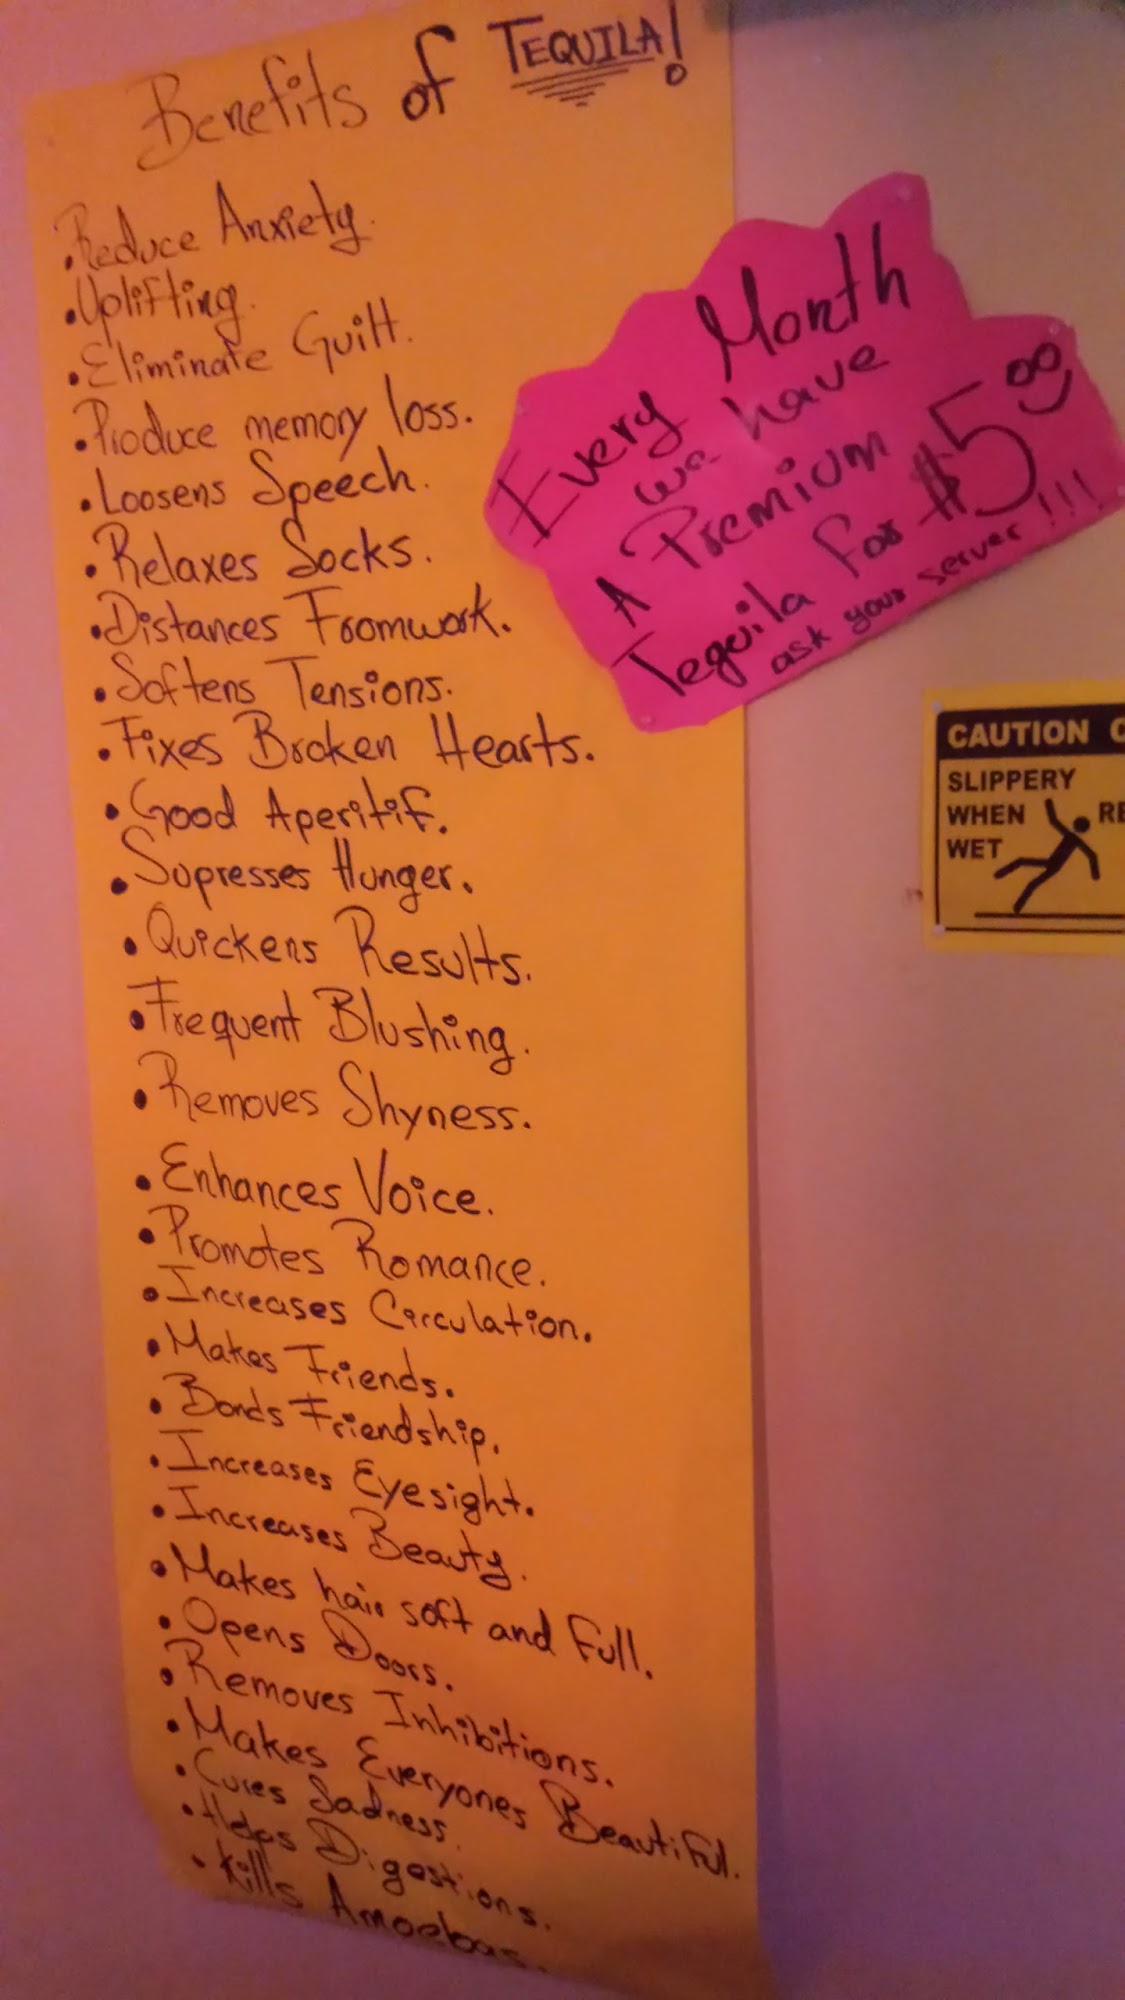 Benefits of TEQUILA!
• Reduce Anxiety.
• Uplifting.
• Eliminate Guilt.
• Produce memory loss.
• Loosens Speech.
• Relaxes Socks.
• Distances Fromwork.
• Softens Tensions.
• Fixes Broken Hearts.
• Good Aperitif.
• Supresses Hunger.
• Quickens Results.
• Frequent Blushing.
• Removes Shyness.
• Enhances Voice.
• Promotes Romance.
• Increases Circulation.
• Makes Friends.
• Bonds Friendship.
• Increases Eyesight.
• Increases Beauty.
• Makes hair soft and Full.
• Opens Doors.
• Removes Inhibitions.
• Makes Everyones Beautiful.
• Cures Sadness.
• Helps Digestions.
• Kills Amoebas.
Every Month
we have
A Premium
Tequila for $5.00
ask your server!!!
CAUTION
SLIPPERY
WHEN
WET